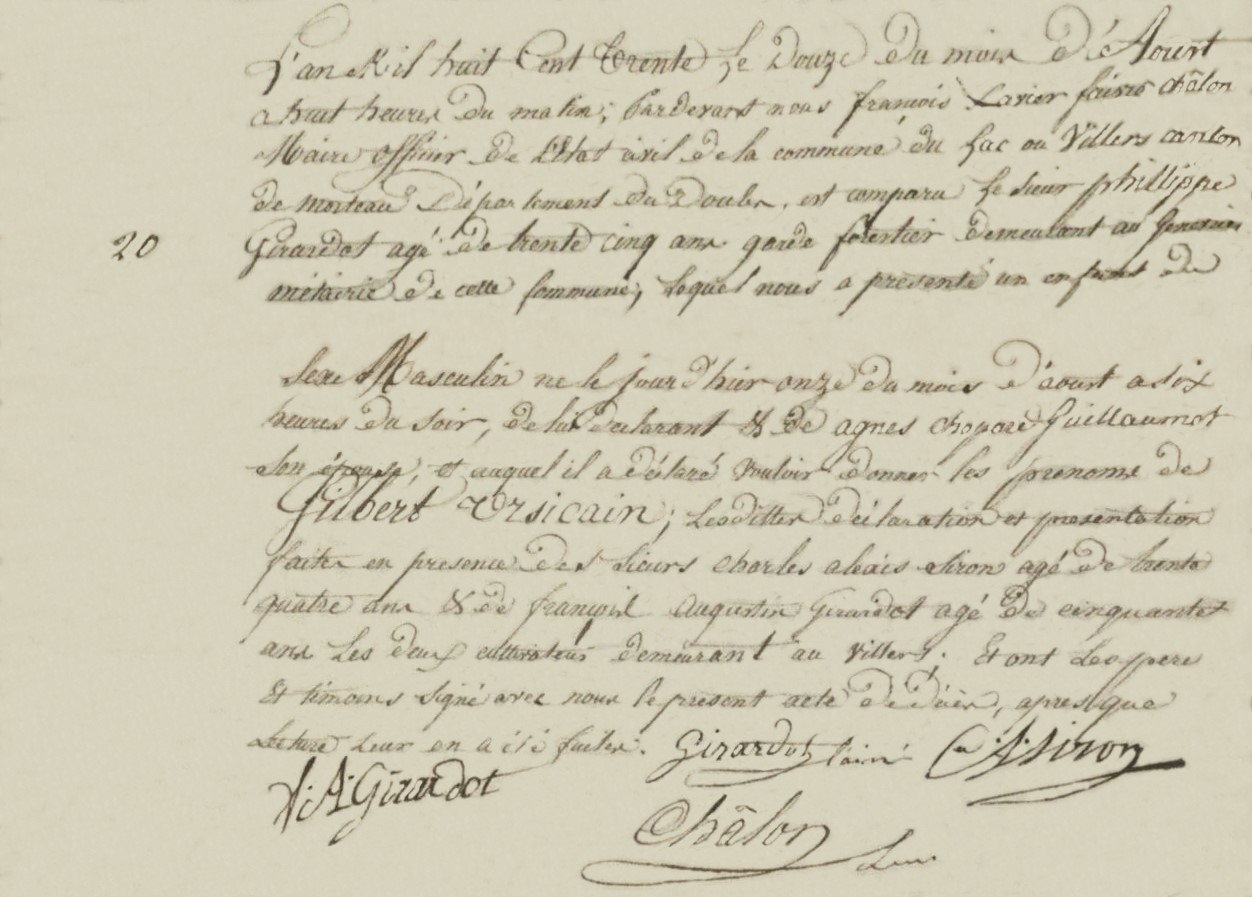 L'an Mil huit Cent Trente Le Douze du mois D'Aoust
a huit heures du matin; Pardevant nous françois Xavier faivre châlon
Maire officier de L'Etat civil de la commune du Lac ou Villers canton
de morteau Département du Doubs, est comparu Le sieur phillippe
20 Girardot agé de trente cinq ans garde forestier demeurant au
métairie de cette Commune, lequel nous a présenté un enfant de
Sexe Masculin ne le jour d'hier onze du mois d'aoust a six
heures du soir, de lui declarant & de agnes chopard Guillaumot
son épouse, et auquel il a déclaré vouloir donner les prenoms de
Gilbert Ursicain; Lesdittes déclaration et presentation
faites en presence des sieurs charles alexis siron agé de trente
quatre ans & de françois augustin Girardot agé de cinquante
ans Les deux cultivateurs demeurant au villers. Et ont Les pere
Et témoins signé avec nous le present acte de décès, apres que
Lecture Leur en a été faite. Girardot l'ainé C A Siron
f: A Girardot
Châlon